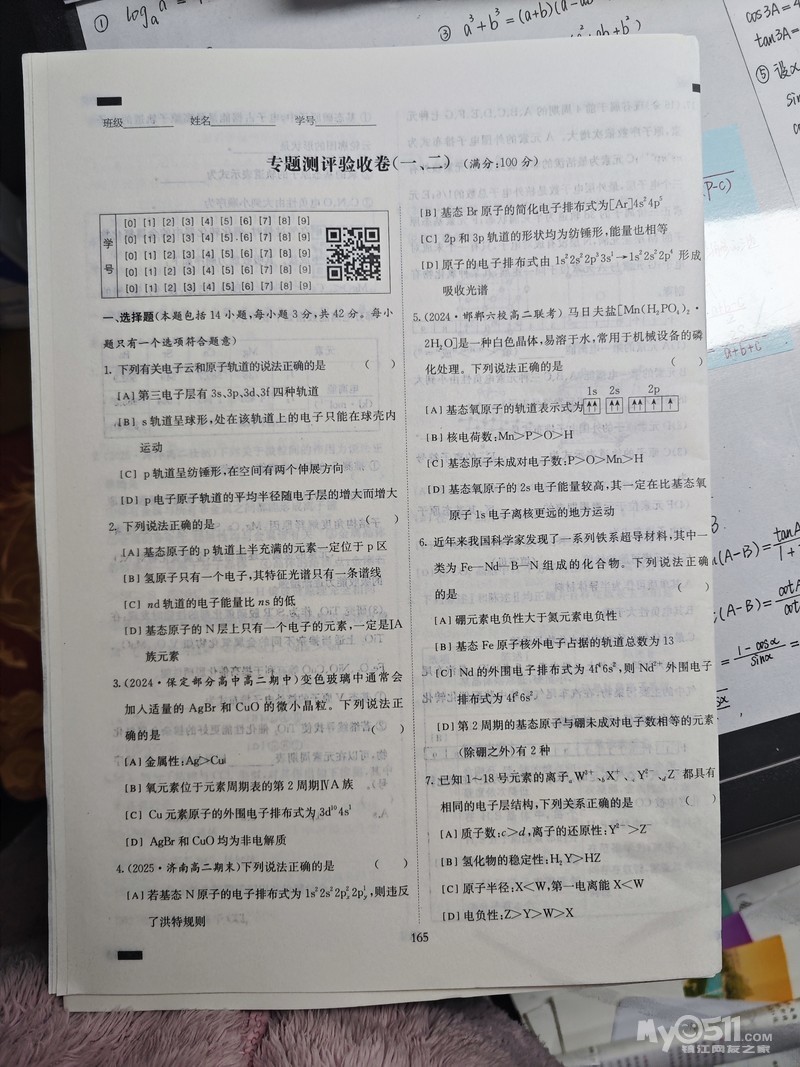 ① log
③ a³+b³=(a+b)(a-ab
cos3A=4
tan3A=
⑤ 设x
班级 姓名 学号
专题测评验收卷(一、二)(满分:100分)
学号
[0] [1] [2] [3] [4] [5] [6] [7] [8] [9]
[0] [1] [2] [3] [4] [5] [6] [7] [8] [9]
[0] [1] [2] [3] [4] [5] [6] [7] [8] [9]
[0] [1] [2] [3] [4] [5] [6] [7] [8] [9]
[0] [1] [2] [3] [4] [5] [6] [7] [8] [9]
一、选择题(本题包括14小题,每小题3分,共42分。每小
题只有一个选项符合题意)
1. 下列有关电子云和原子轨道的说法正确的是 ( )
[A] 第三电子层有3s、3p、3d、3f四种轨道
[B] s轨道呈球形,处在该轨道上的电子只能在球壳内
运动
[C] p轨道呈纺锤形,在空间有两个伸展方向
[D] p电子原子轨道的平均半径随电子层的增大而增大
2. 下列说法正确的是 ( )
[A] 基态原子的p轨道上半充满的元素一定位于p区
[B] 氢原子只有一个电子,其特征光谱只有一条谱线
[C] nd轨道的电子能量比ns的低
[D] 基态原子的N层上只有一个电子的元素,一定是ⅠA
族元素
3. (2024·保定部分高中高二期中)变色玻璃中通常会
加入适量的AgBr和CuO的微小晶粒。下列说法正
确的是 ( )
[A] 金属性:Ag>Cu
[B] 氧元素位于元素周期表的第2周期ⅣA族
[C] Cu元素原子的外围电子排布式为3d¹⁰4s¹
[D] AgBr和CuO均为非电解质
4. (2025·济南高二期末)下列说法正确的是 ( )
[A] 若基态N原子的电子排布式为1s²2s²2pₓ²2p_y¹,则违反
了洪特规则
[B] 基态Br原子的简化电子排布式为[Ar]4s²4p⁵
[C] 2p和3p轨道的形状均为纺锤形,能量也相等
[D] 原子的电子排布式由1s²2s²2p³3s¹→1s²2s²2p⁴形成
吸收光谱
5. (2024·邯郸六校高二联考)马日夫盐[Mn(H₂PO₄)₂·
2H₂O]是一种白色晶体,易溶于水,常用于机械设备的磷
化处理。下列说法正确的是 ( )
1s 2s 2p
[A] 基态氧原子的轨道表示式为 ↑↑ ↑↑ ↑↑ ↑ ↑
[B] 核电荷数:Mn>P>O>H
[C] 基态原子未成对电子数:P>O>Mn>H
[D] 基态氧原子的2s电子能量较高,其一定在比基态氧
原子1s电子离核更远的地方运动
6. 近年来我国科学家发现了一系列铁系超导材料,其中一
类为Fe—Nd—B—N组成的化合物。下列说法正确
的是 ( )
[A] 硼元素电负性大于氮元素电负性
[B] 基态Fe原子核外电子占据的轨道总数为13
[C] Nd的外围电子排布式为4f⁴6s²,则Nd²⁺外围电子
排布式为4f²6s²
[D] 第2周期的基态原子与硼未成对电子数相等的元素
(除硼之外)有2种
7. 已知1~18号元素的离子ₐW³⁺、ᵦX⁺、Y²⁻、Z⁻都具有
相同的电子层结构,下列关系正确的是 ( )
[A] 质子数:c>d,离子的还原性:Y²⁻>Z⁻
[B] 氢化物的稳定性:H₂Y>HZ
[C] 原子半径:X<W,第一电离能X<W
[D] 电负性:Z>Y>W>X
165
P-C)
a+b+c
(A-B)=tanA
(A-B)=cotA
1-cosx
sinx
My0511.COM
镇江网友之家